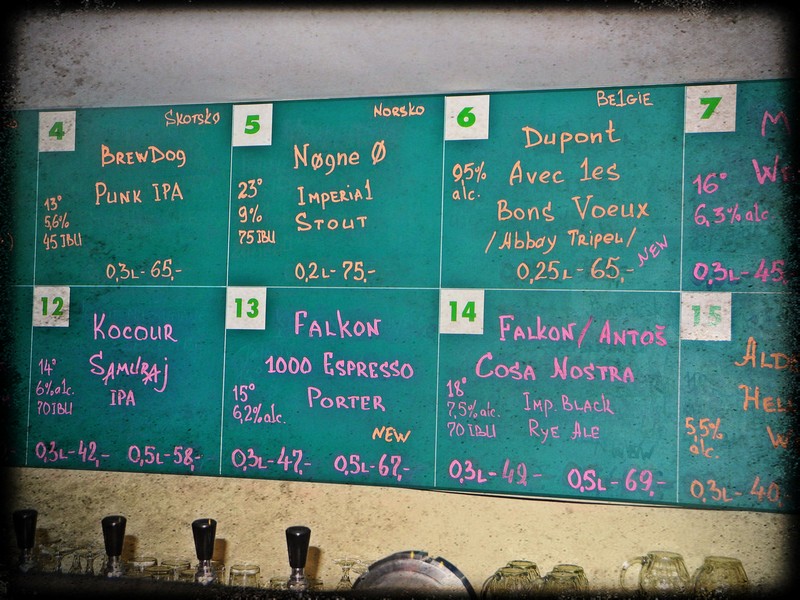 4
Skotsko
BrewDog
Punk IPA
13°
5,6%
45 IBU
0,3L - 65,-
5
Norsko
Nøgne Ø
23°
Imperial
9%
Stout
75 IBU
0,2L - 75,-
6
Belgie
Dupont
9,5%
alc.
Avec les
Bons Voeux
/Abbay Tripel/
NEW
0,25L - 65,-
7
16°
6,3% alc
0,3L - 45,
12
Kocour
Samuraj
IPA
14°
6% alc.
70 IBU
0,3L - 42,- 0,5L - 58,-
13
Falkon
1000 Espresso
Porter
15°
6,2% alc.
NEW
0,3L - 47,- 0,5L - 67,-
14
Falkon/Antoš
Cosa Nostra
18°
7,5% alc.
70 IBU
Imp. Black
Rye Ale
0,3L - 49,- 0,5L - 69,-
15
5,5%
alc.
0,3L - 40,